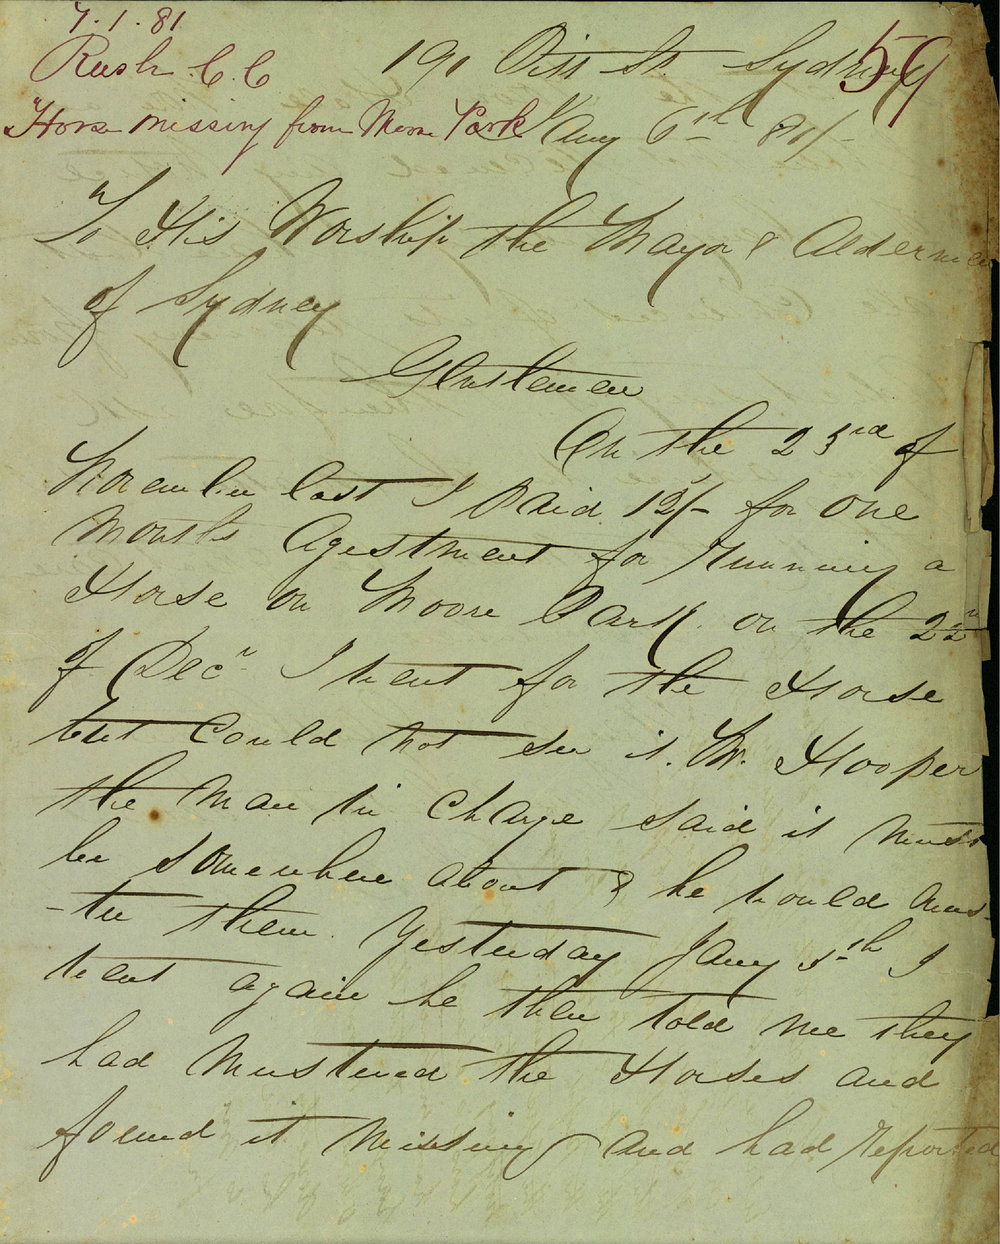 7.1.81
Rush. C. C
59
Horse missing from Moore Park
190 Pitt St. Sydney
Jany 6th 81/-
To His Worship the Mayor & Aldermen
of Sydney
Gentlemen
On the 23rd of
November last I paid 12/- for one
Months Agestment for running a
Horse on Moore Park. on the 22n
of Decr I went for the Horse
but could not see it. Mr. Hooper
the man in charge said it must
be somewhere about & he would mus-
-ter them. Yesterday Jany 5th I
went again he then told me they
had mustered the Horses and
found it missing and had reported